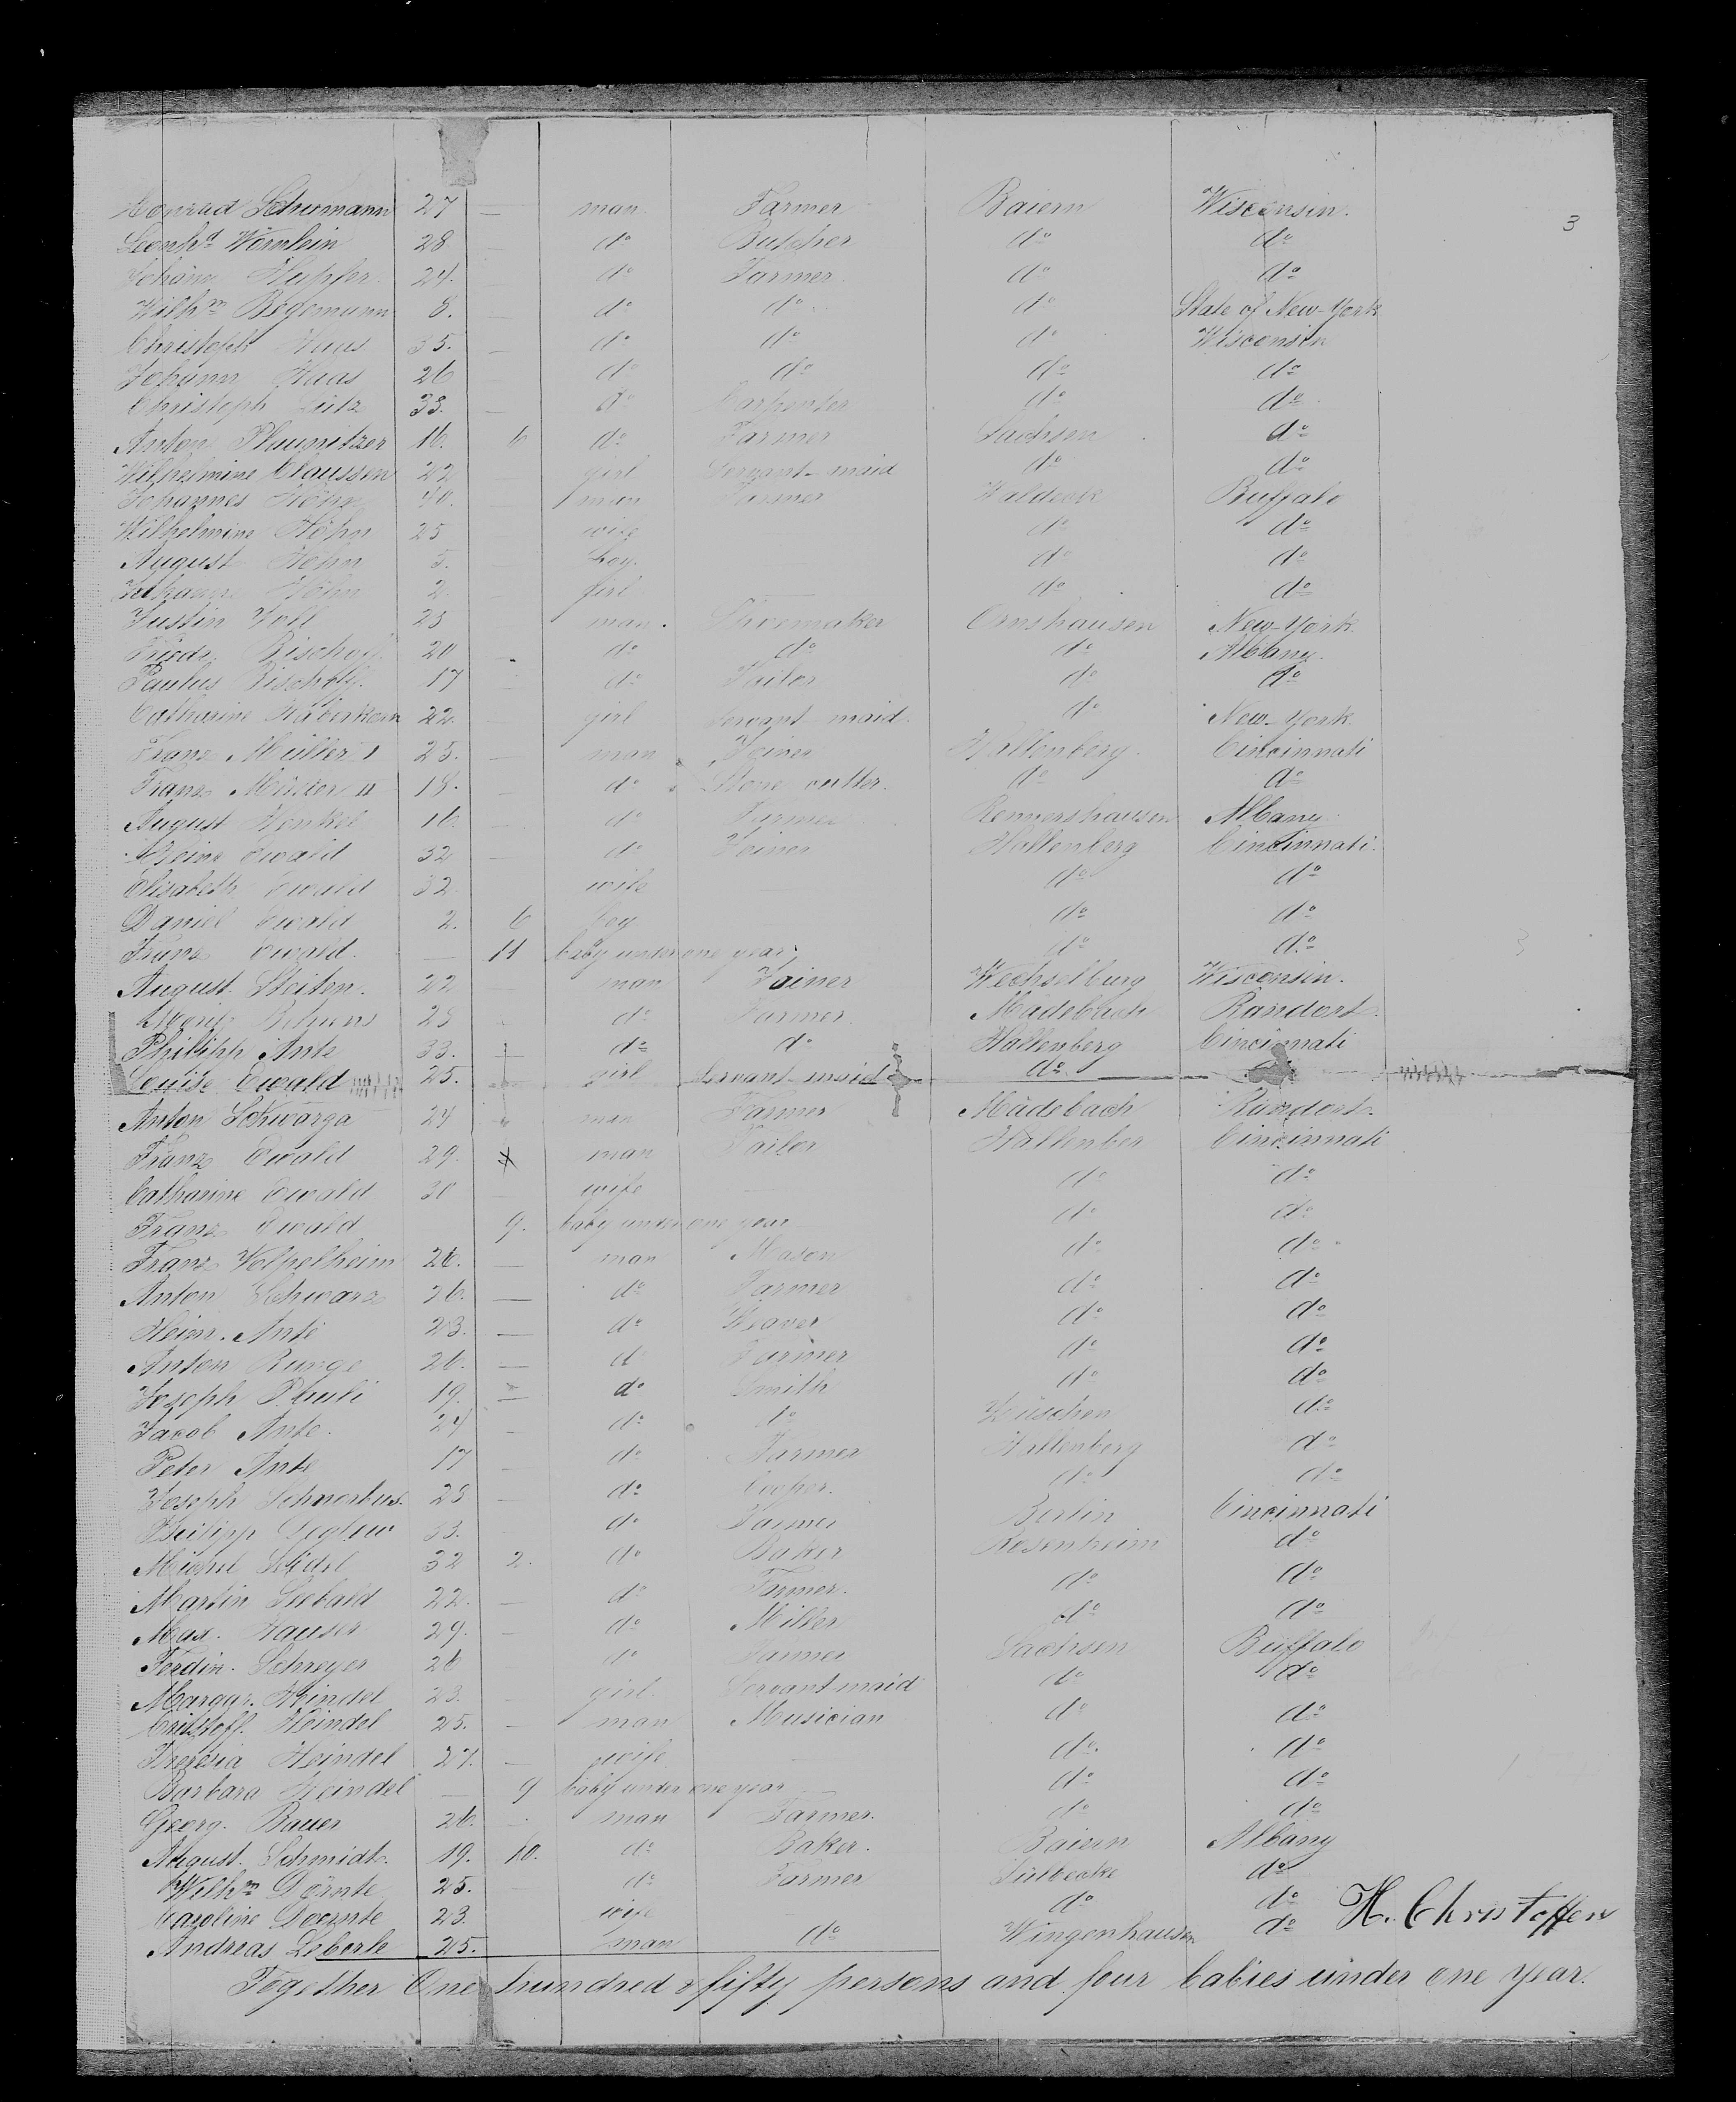 3
Conrad Schumann 27 — man Farmer Baiern Wisconsin.
Leonhd Wörnlein 28 — do Butcher do do
Johann Hupfer 24. — do Farmer. do do
Wilhm Begemann 8. — do do do State of New-York
Christoph Haas 35. — do do do Wisconsin
Johann Haas 26 — do do do do
Christoph Lutz 33. — do Carpenter do do
Anton Plaunitzer 16. 6 do Farmer Sachsen do
Wilhelmine Claussen 22 girl Servant-maid do do
Johannes Höhn 40. man Farmer Waldeck Buffalo
Wilhelmine Höhn 25 wife do do
August Höhn 5. boy. do do
Höhn 2 girl do do
Justin Voll 25 man. Shoemaker Ornshausen New-York.
Friedr. Bischoff 20 do do do Albany.
Paulus Bischoff. 17 — do Tailor do do
Catharine Haberkorn 22. girl Servant maid. do New-York.
Franz Müller I 25. — man Joiner Hallenberg. Cincinnati
Franz Müller II 18. — do Stone cutter. do do
August Henkel 16. do Farmer Rennershausen Albany.
Heinr. Ewald 32 — do Joiner Hallenberg Cincinnati.
Elisabeth Ewald 32. wife do do
Daniel Ewald 2. 6 boy do do
Franz Ewald. — 11 baby under one year, do do
August Steiten. 22 — man Joiner Wechselburg Wisconsin.
Behrens 28 do Farmer Madebach Randort.
Philipp Ante 33. do do Hallenberg Cincinnati
Louise Ewald 25. girl Servant-maid do
Anton Schwarga 24 man Farmer Mädebach Randort.
Franz Ewald 29. man Tailor Hallenber Cincinnati
Catharine Ewald 30 — wife do do
Franz Ewald 9. baby under one year do do
Franz Volpelheim 26. — man Mason do do
Anton Schwarz 26. — do Farmer do do
Heinr. Ante 23. — do Weaver do do
Anton Runge 26. — do Farmer do do
Joseph Pauli 19. — do Smith do do
Jacob Ante. 24 — do do Züschen do
Peter Ante 17 — do Farmer Hallenberg do
Joseph Schnorbus. 25 — do Cooper. do do
Philipp 33. do Farmer Berlin Cincinnati
Michel Seidel 32 2. do Baker Rosenheim do
Martin Seebald 22. — do Farmer. do do
Max. Hauser 29. — do Miller do do
Ferdin. Schreyer 26 do Farmer Sachsen Buffalo
Margar. Heindel 23. — girl. Servant-maid do do
Cristoff. Heindel 25. — man Musician do do
Theresia Heindel 27. — wife do do
Barbara Heindel — 9 baby under one year do do
Georg. Bauer 26. man Farmer. do do
August. Schmidt. 19. 10. do Baker. Baiern Albany
Wilhm Dörnte 25. do Farmer Sülbecke do
Caroline Doernte 23. wife do do
Andreas Leberle 25. man do Wingenhausen do
H. Christoffers
Together One hundred & fifty persons and four babies under one year.